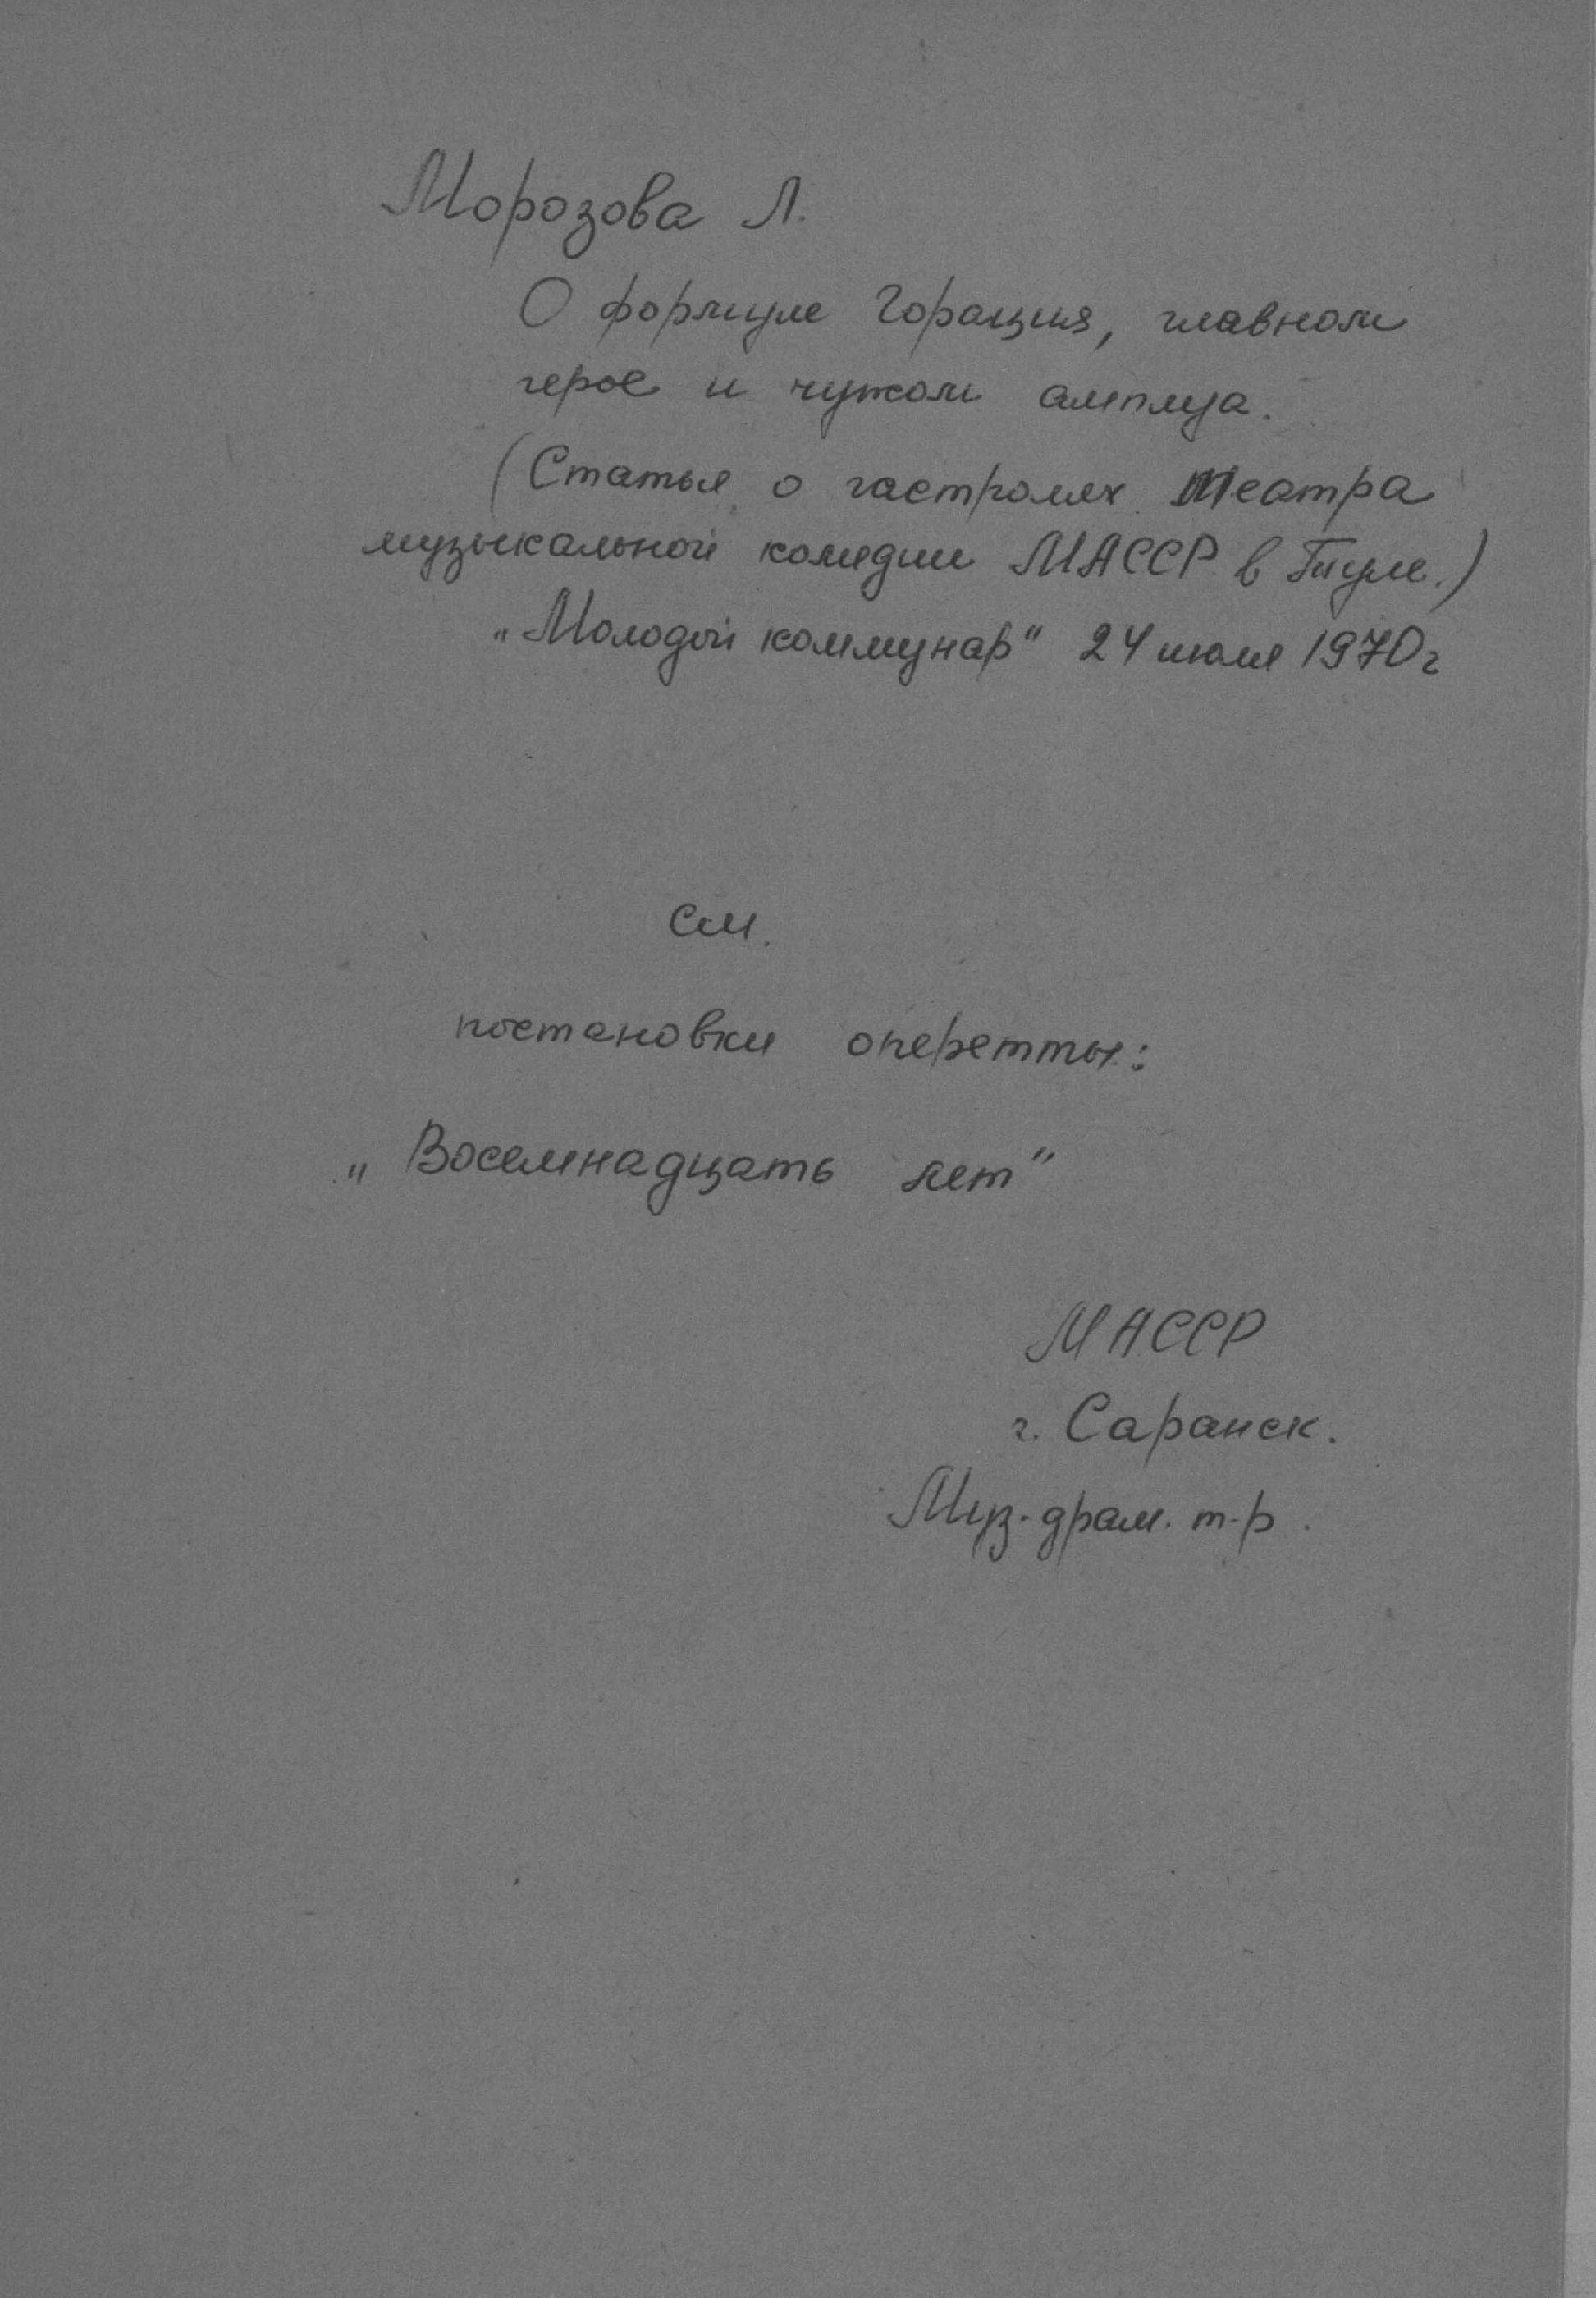 Морозова Л.
О формуле Горация, главном
герое и чужом амплуа.
(Статья о гастролях театра
музыкальной комедии МАССР в Туле.)
„Молодой коммунар" 24 июля 1970 г
См.
постановки оперетты:
„Восемнадцать лет"
МАССР
г. Саранск.
Муз-драм. т-р.